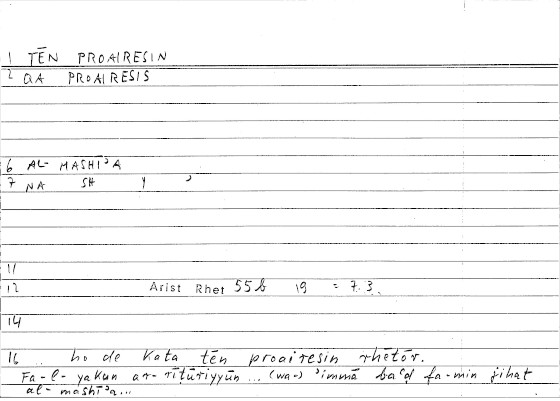 1 TĒN PROAIRESIN
2 QA PROAIRESIS
6 AL- MASHĪʾA
7 NA SH Y ʾ
11
12 Arist Rhet 55b 19 = 7.3.
14
16 .. ho de kata tēn proairesin rhētōr.
Fa-l- yakun ar-rīṭūriyyūn ... (wa-) ʾimmā baʿḍ fa-min jihat
al-mashīʾa...